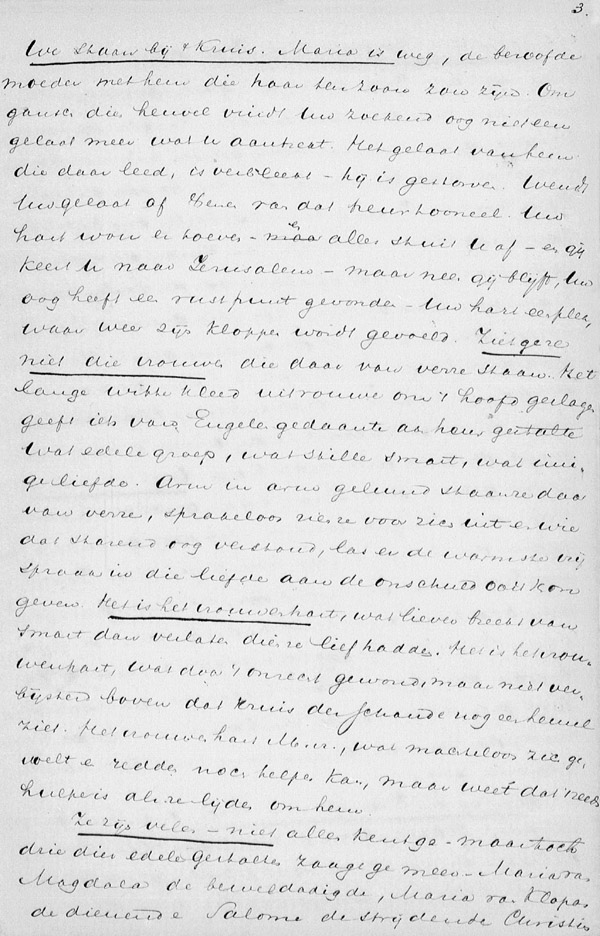 3.
We staan bij 't Kruis. Maria is weg, de beroofde
moeder met hem die haar ten zoon zou zijn. Om
gansch dien heuvel vindt Uw zoekend oog niet een
gelaat meer wat U aantrekt. Het gelaat van hem
die daar leed, is verbleekt – hij is gestorven. Wendt
Uw gelaat af Heer van dat treurtooneel. Uw
hart wou er toeven – er alles stuit U af – en gij
keert U naar Jerusalem – maar neen gij blijft, Uw
oog heeft een rustpunt gevonden – Uw hart een plek,
waar weer zijn kloppen wordt gevoeld. Ziet ge ze
niet die vrouwen die daar van verre staan. Het
lange witte kleed uitrouwe om 't hoofd geslagen
geeft iets van Engelen gedaante aan heur gestalte
Wat edele groep, wat stille smart, wat inni-
ge liefde. Arm in arm geleund staan ze daar
van verre, sprakeloos zien ze voor zich uit en wie
dat starend oog verstond, las er de warmste vrij
spraak in die liefde aan de onschuld ooit kon
geven. Het is het vrouwenhart, wat liever breekt van
smart dan verlaten die ze lief hadden. Het is het vrou-
wenhart, wat door 't onrecht gewond, maar niet ver-
bijsterd boven dat Kruis der Schande nog een hemel
ziet. Het vrouwenhart M.v., wat machteloos zich ge-
voelt en redden noch helpen kan, maar weet dat 't reeds
hulpe is als ze lijden om hem.
Ze zijn velen – niet allen kent ge – maar toch
drie dier edele Gestalten zaagt ge meer – Maria van
Magdala de beweldadigde, Maria van Klopas
de dienende Salome de strijdende Christin